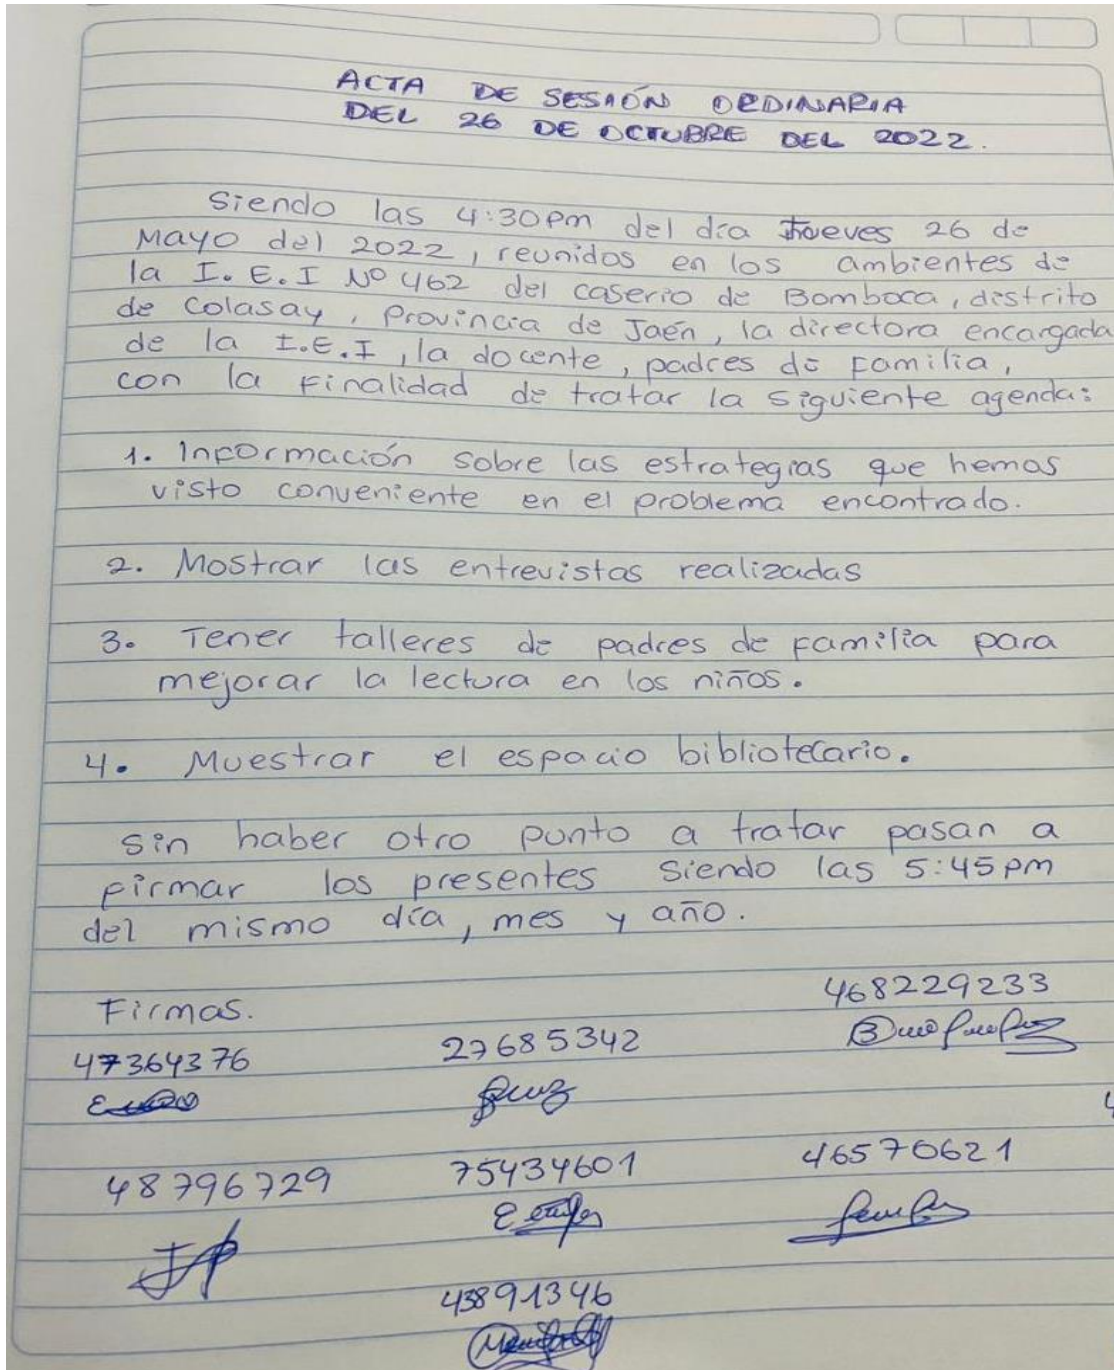 ACTA DE SESIÓN ORDINARIA
DEL 26 DE OCTUBRE DEL 2022.
Siendo las 4:30pm del día Jueves 26 de
Mayo del 2022, reunidos en los ambientes de
la I.E.I Nº 462 del caserio de Bomboca, distrito
de Colasay, Provincia de Jaén, la directora encargada
de la I.E.I, la docente, padres de Familia,
con la Finalidad de tratar la siguiente agenda:
1. Información sobre las estrategias que hemos
visto conveniente en el problema encontrado.
2. Mostrar las entrevistas realizadas
3. Tener talleres de padres de familia para
mejorar la lectura en los niños.
4. Muestrar el espacio bibliotecario.
Sin haber otro punto a tratar pasan a
firmar los presentes siendo las 5:45pm
del mismo día, mes y año.
Firmas.
468229233
47364376
27685342
48796729
75434601
46570621
43891346